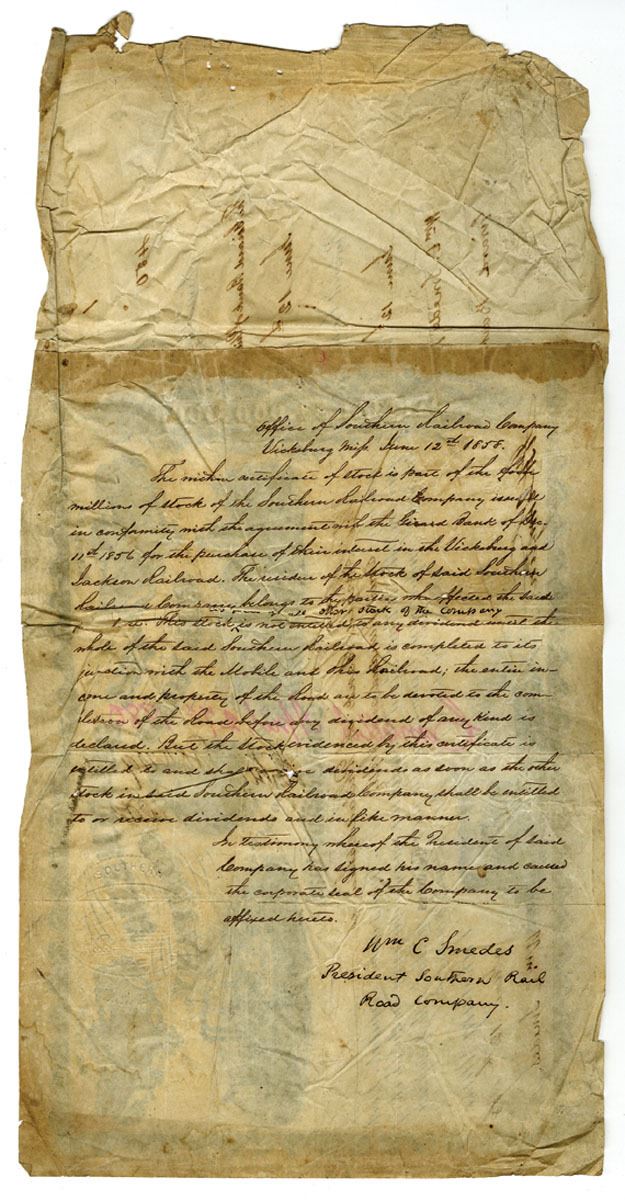 Office of Southern Railroad Company
Vicksburg Miſs June 12th 1858.
The within certificate of stock is part of the
millions of stock of the Southern Railroad Company issued
in conformity with the agreement with the Girard Bank of Dec.
11th 1856 for the purchase of their interest in the Vicksburg and
Jackson Railroad. The residue of the Stock of said Southern
Railroad Company belongs to the parties who effected the said
nor is other stock of the company
This stock is not entitled to any dividend until the
whole of the said Southern Railroad is completed to its
junction with the Mobile and Ohio Railroad; the entire in-
come and property of the Road are to be devoted to the com-
pletion of the Road before any dividend of any kind is
declared. But the Stock evidenced by this certificate is
entitled to and shall receive dividends as soon as the other
stock in said Southern Railroad Company shall be entitled
to or receive dividends and in like manner.
In testimony whereof the President of said
Company has signed his name and caused
the corporate seal of the Company to be
affixed hereto.
Wm C. Smedes
President Southern Rail
Road Company.
SOUTHERN